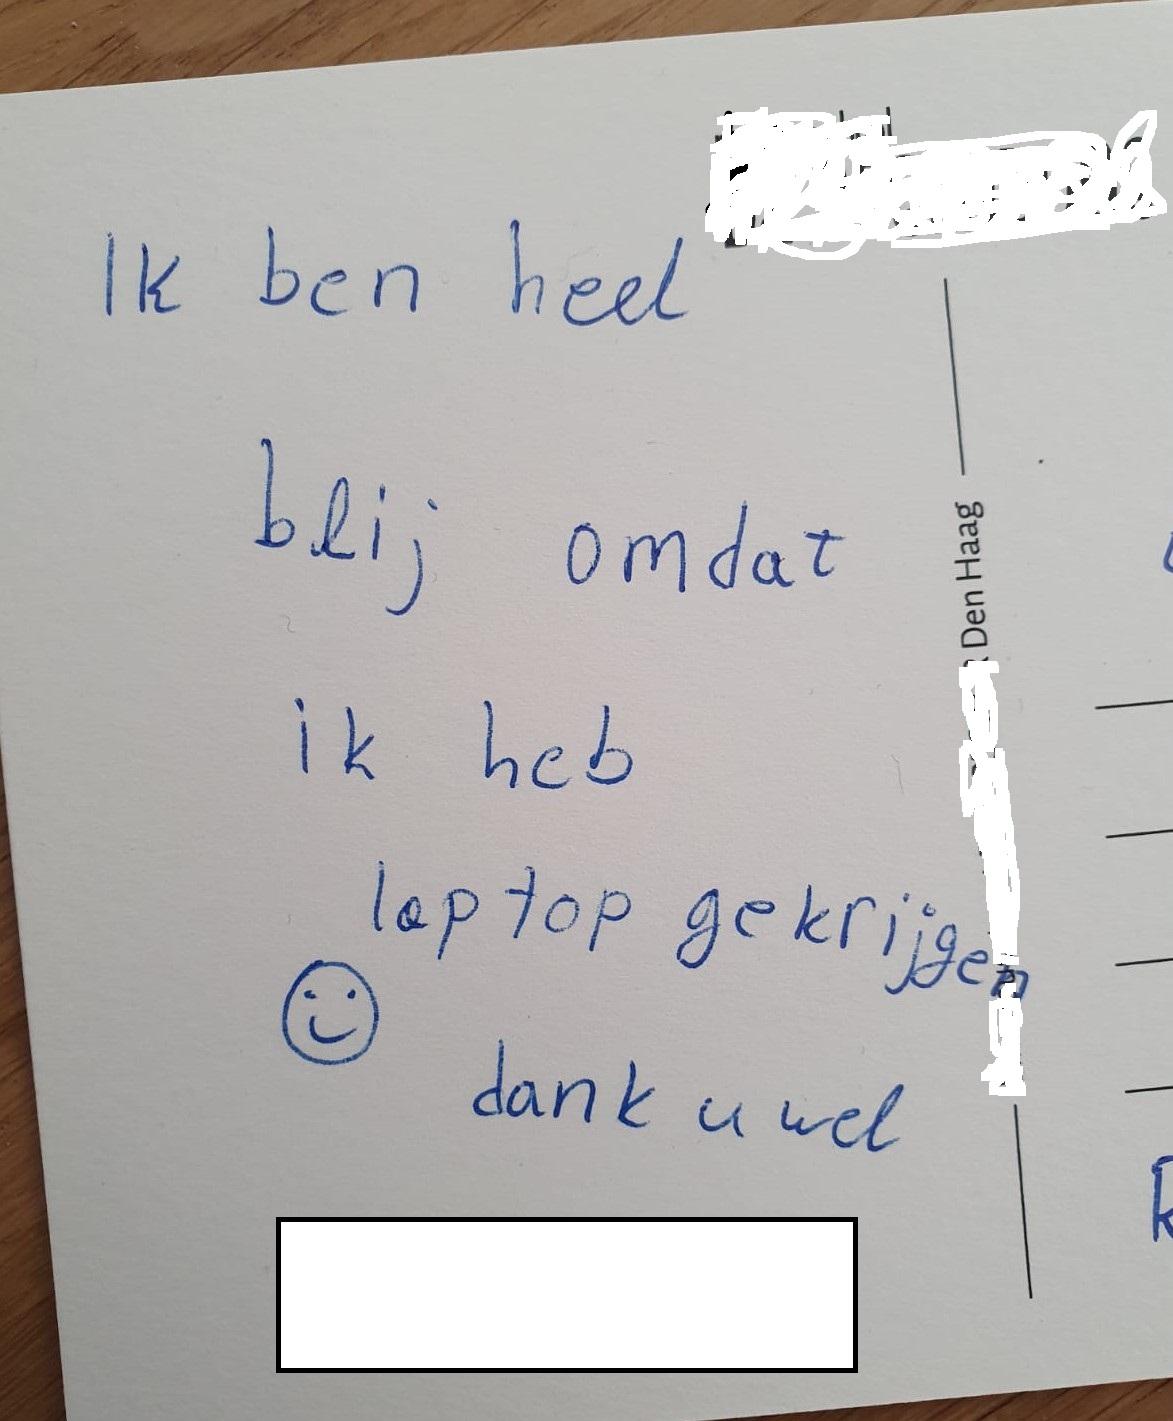 Ik ben heel
blij omdat
ik heb
laptop gekrijgen
dank u wel
Den Haag